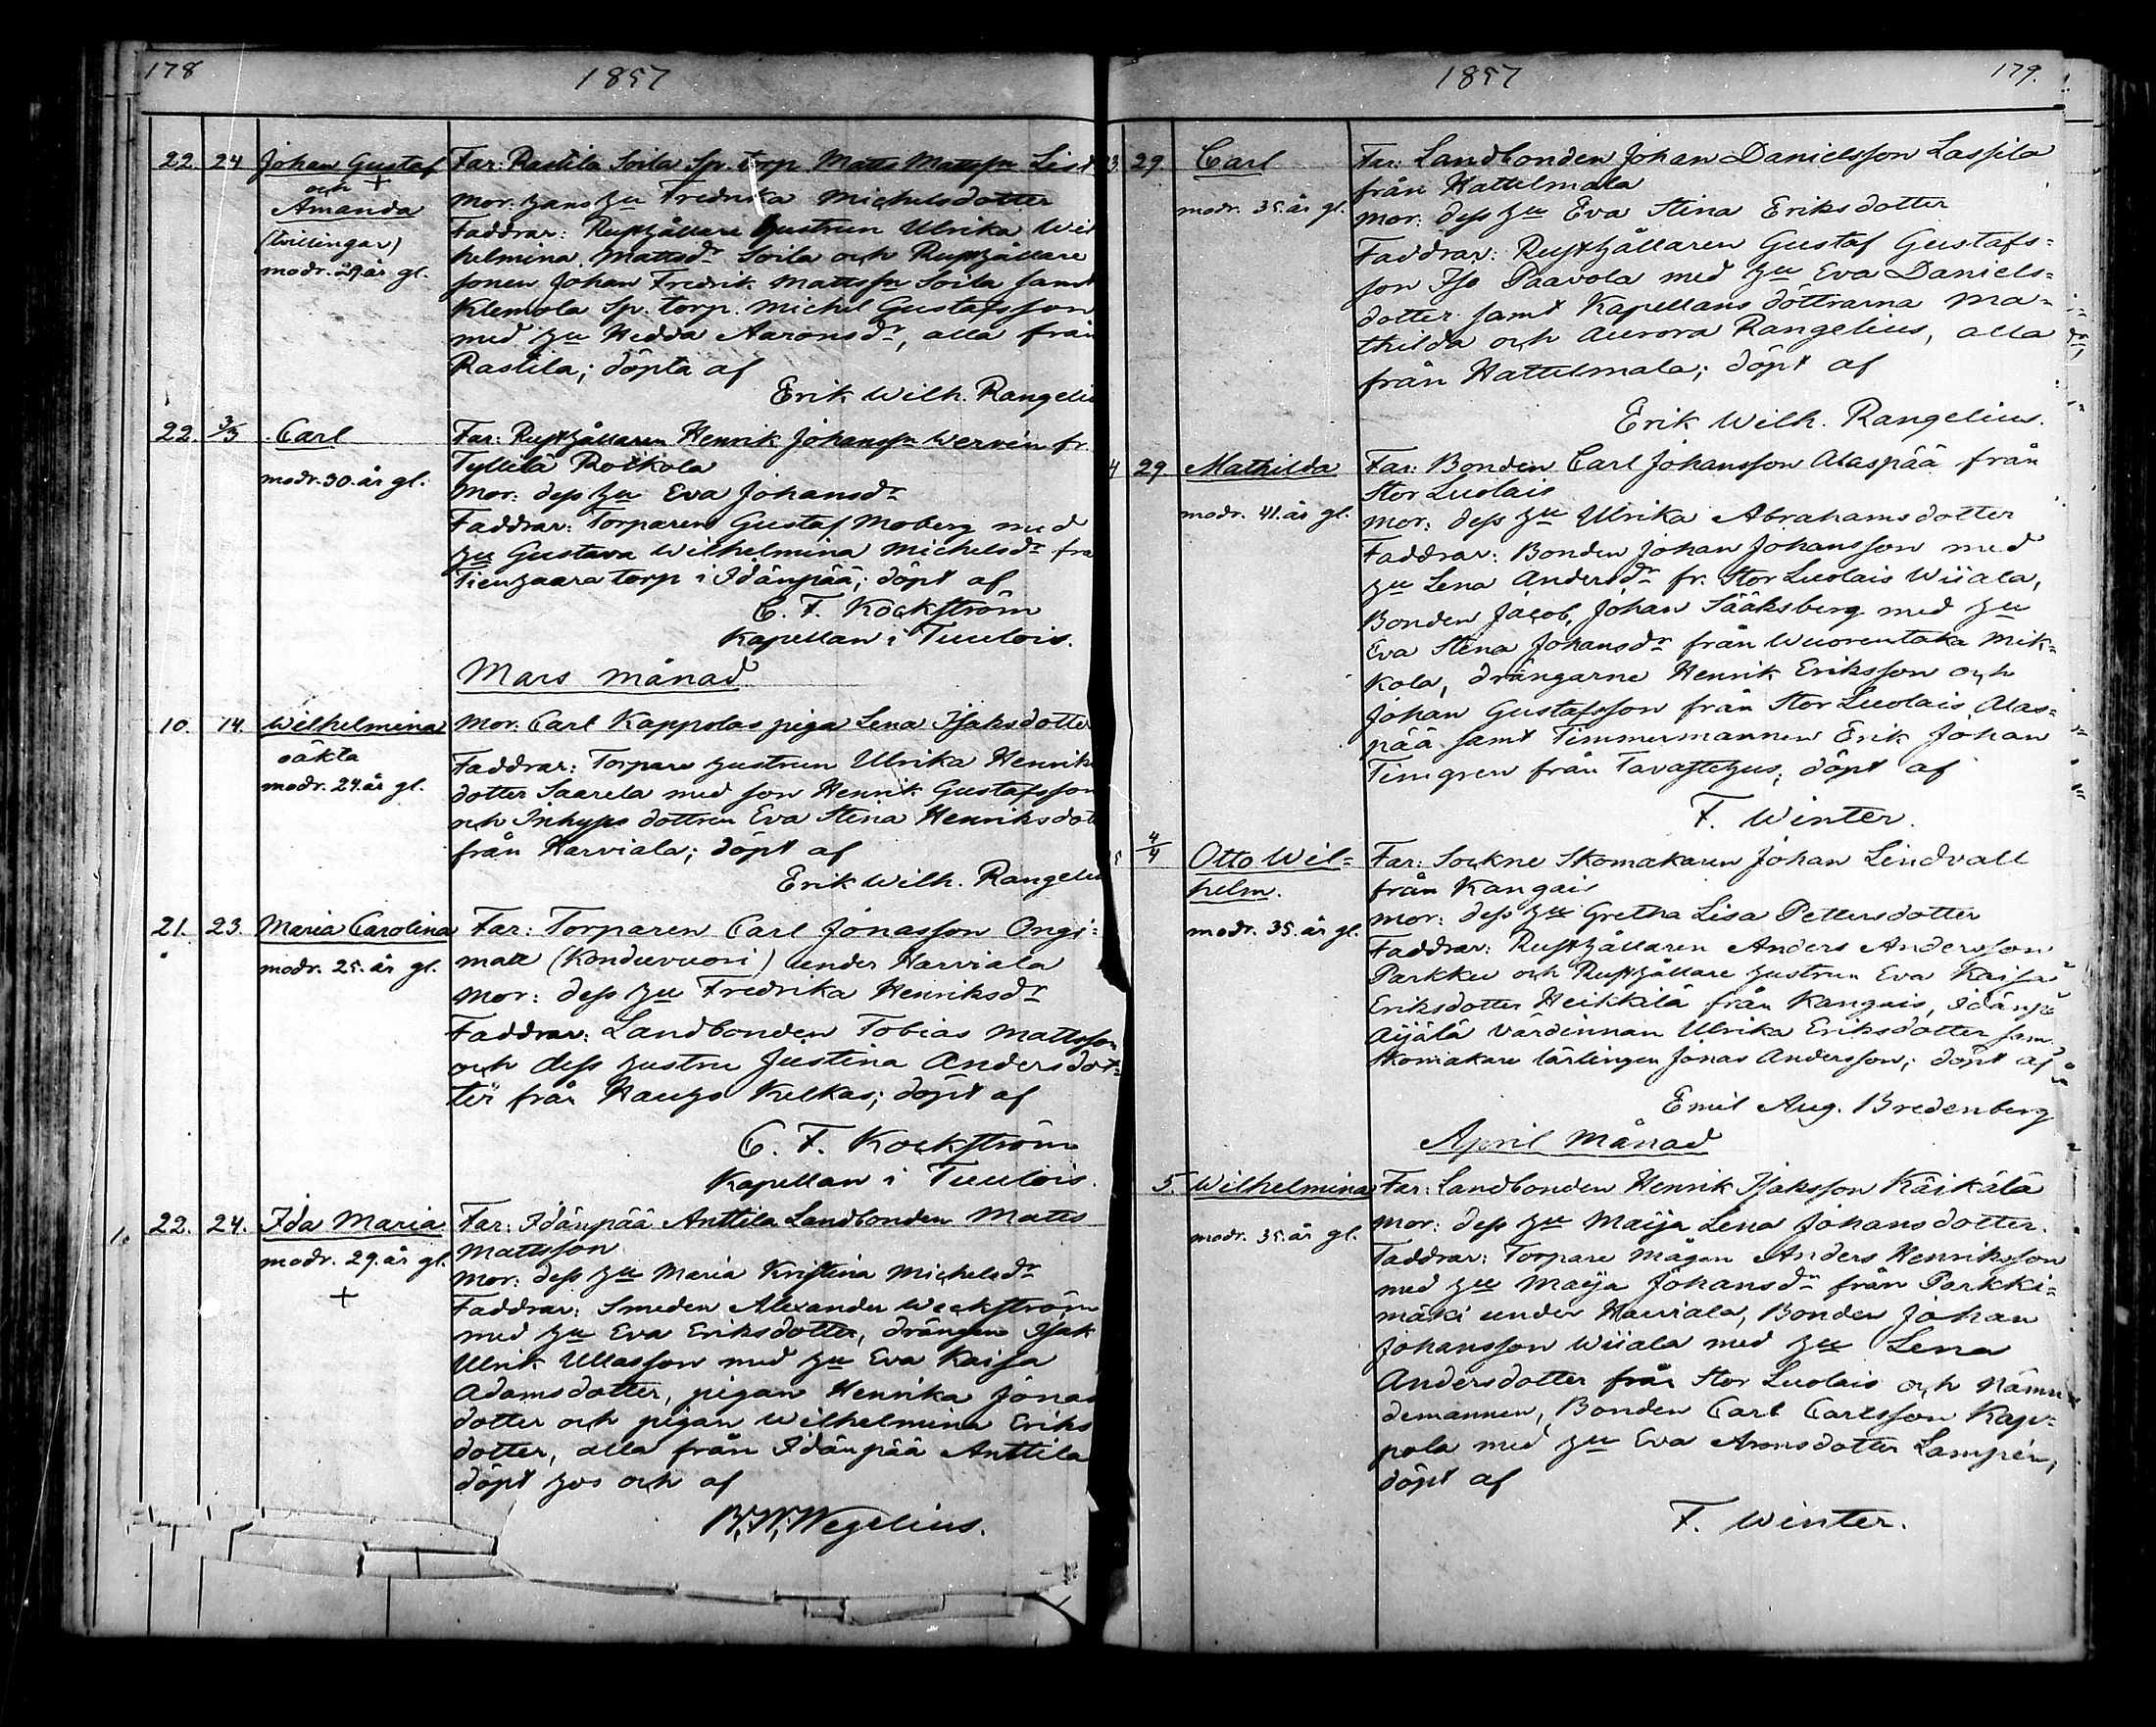 178
1857
22. 24 Johan Gustaf Far: Rastila Soila Sp. torp. Matts Mattssn
och +
Amanda Mor. hans hu Fredrika Michelsdotter
(tvillingar) Faddrar: Rusthållare hustrun Ulrika Wil
modr. 29 år gl. helmina Mattsdr Soila och Rusthållare
sonen Johan Fredrik Mattssn Soila samt
Klemola Sp. torp. Michel Gustafsson
med hu Hedda Aaronsdr, alla från
Rastila; döpta af
Erik Wilh. Rangeliu
22 3/3 Carl Far: Rusthållaren Henrik Johanssn Wervén fr.
modr. 30. år gl. Tyllilä Rotkola
Mor: dess hu Eva Johansdr
Faddrar: Torparen Gustaf Moberg med
hu Gustava Wilhelmina Michelsdr
Tienhaara torp i Idänpää; döpt af
C. F. Kockström
Kapellan i Tuulois.
Mars månad
10. 14. Wilhelmina Mor. Carl Kappolas piga Lena Isaksdotte
oäkta Faddrar: Torpare hustrun Ulrika Henriks
modr. 24. år gl. dotter Saarela med son Henrik Gustafsson
och Inhyses dottren Eva Stina Henriksdott
från Harviala; döpt af
Erik Wilh. Rangeliu
21. 23. Maria Carolina Far: Torparen Carl Jonasson Ongi-
modr. 25. år gl. maa (Konduvuori) under Harviala
Mor: dess hu Fredrika Henriksdr
Faddrar: Landbonden Tobias Mattsson
och dess hustru Justina Andersdot-
ter från Hauho Kelkas; döpt af
C. F. Kockström
Kapellan i Tuulois.
1. 22. 24. Ida Maria Far: Idänpää Anttila Landbonden Matts
modr. 29. år gl. Mattsson
+ Mor: dess hu Maria Kristina Michelsdr
Faddrar: Smeden Alexander Weckström
med hu Eva Eriksdotter, drängen Isak
Ulrik Ullasson med hu Eva Kaisa
Adamsdotter, pigan Henrika Jonas
dotter och pigan Wilhelmina Eriks
dotter, alla från Idänpää Anttila
döpt hos och af
B. W. Wegelius.
1857
179.
3. 29. Carl Far: Landbonden Johan Danielsson Lassila
från Hattelmala
modr. 35. år gl. Mor: dess hu Eva Stina Eriksdotter
Faddrar: Rusthållaren Gustaf Gustafs-
son Iso Paavola med hu Eva Daniels-
dotter samt Kapellans döttrarna Ma-
thilda och Aurora Rangelius, alla
från Hattelmala; döpt af
Erik Wilh. Rangelius.
4 29 Mathilda Far: Bonden Carl Johansson Alaspää från
Stor Luolais
modr. 41. år gl. Mor: dess hu Ulrika Abrahamsdotter
Faddrar: Bonden Johan Johansson med
hu Lena Andersdr fr. Stor Luolais Wiiala,
Bonden Jacob Johan Sääksberg med hu
Eva Stina Johansdr från Wuorentaka Mik-
kola, drängarne Henrik Eriksson och
Johan Gustafsson från Stor Luolais Alas-
pää samt Timmermannen Erik Johan
Timgren från Tavastehus; döpt af
F. Winter.
4/4 Otto Wil- Far: Sockne Skomakaren Johan Lindvall
helm. från Kangais
modr. 35. år gl. Mor: dess hu Gretha Lisa Pettersdotter
Faddrar: Rusthållaren Anders Andersson
Parkku och Rusthållare hustrun Eva Kaisa
Eriksdotter Heikkilä från Kangais, Idänpä
Äijälä värdinnan Ulrika Eriksdotter sam
Skomakare lärlingen Jonas Andersson; döpt af
Emil Aug. Bredenberg
April Månad
5. Wilhelmina Far: Landbonden Henrik Isaksson Käikälä
modr. 35. år gl. Mor: dess hu Maija Lena Johansdotter.
Faddrar: Torpare mågen Anders Henriksson
med hu Maija Johansdr från Parkki-
mäki under Harviala, Bonden Johan
Johansson Wiiala med hu Lena
Andersdotter från Stor Luolais och Nämn
demannen, Bonden Carl Carlsson Kap-
pola med hu Eva Aronsdotter Lampén,
döpt af
F. Winter.